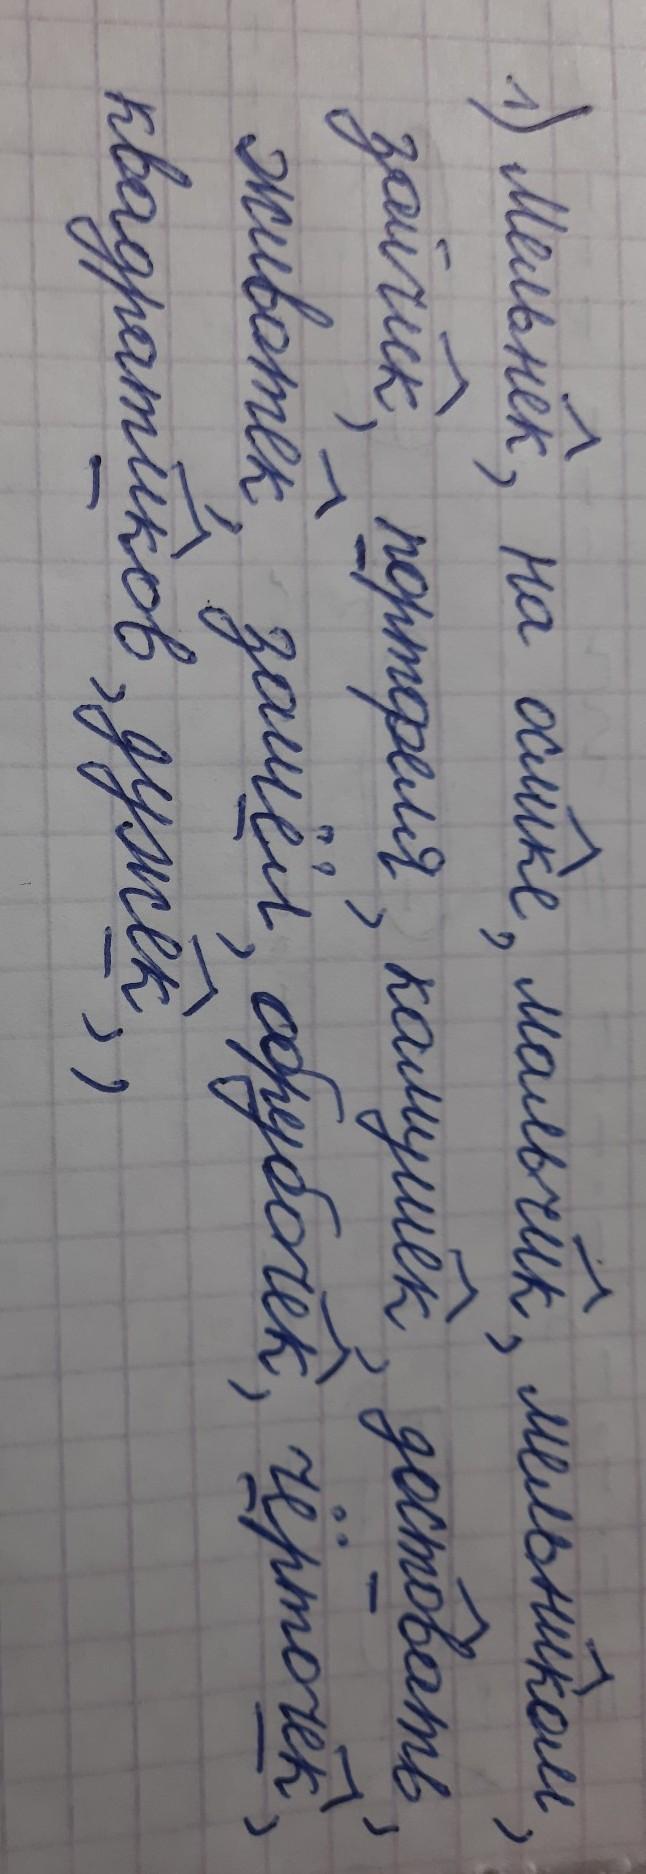 1) Мельнек, на ослике, мальчик, мельником,
зайчик, портфеля, камушек, доставать,
животек, зашёл, обрубочек, чёрточек,
квадратиков, дужек, ,